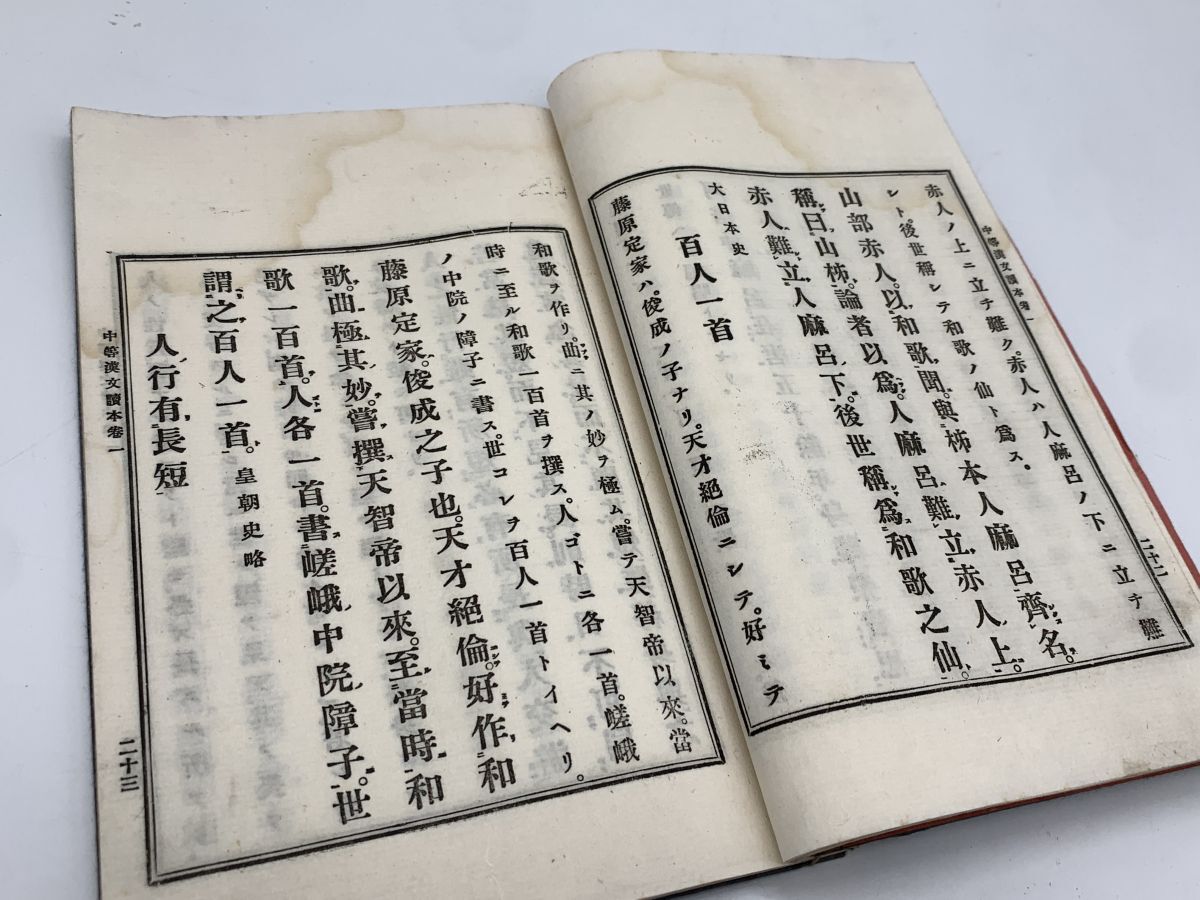 中等漢文讀本卷一
二十二
赤人ノ上ニ立チ難ク。赤人ハ人麻呂ノ下ニ立チ難
シト。後世稱シテ和歌ノ仙ト爲ス。
山部赤人。以和歌聞。與柿本人麻呂齊名。
稱曰山柿。論者以爲。人麻呂難立赤人上。
赤人難立人麻呂下。後世稱爲和歌之仙。
大日本史
百人一首
藤原定家ハ。俊成ノ子ナリ。天才絕倫ニシテ。好ミテ
和歌ヲ作リ。曲ニ其ノ妙ヲ極ム。嘗テ天智帝以來。當
時ニ至ル和歌一百首ヲ撰ス。人ゴトニ各一首。嵯峨
ノ中院ノ障子ニ書ス。世コレヲ百人一首トイヘリ。
藤原定家。俊成之子也。天才絕倫。好作和
歌。曲極其妙。嘗撰天智帝以來。至當時和
歌一百首。人各一首。書嵯峨中院障子。世
謂之百人一首。皇朝史略
人行有長短
中等漢文讀本卷一
二十三